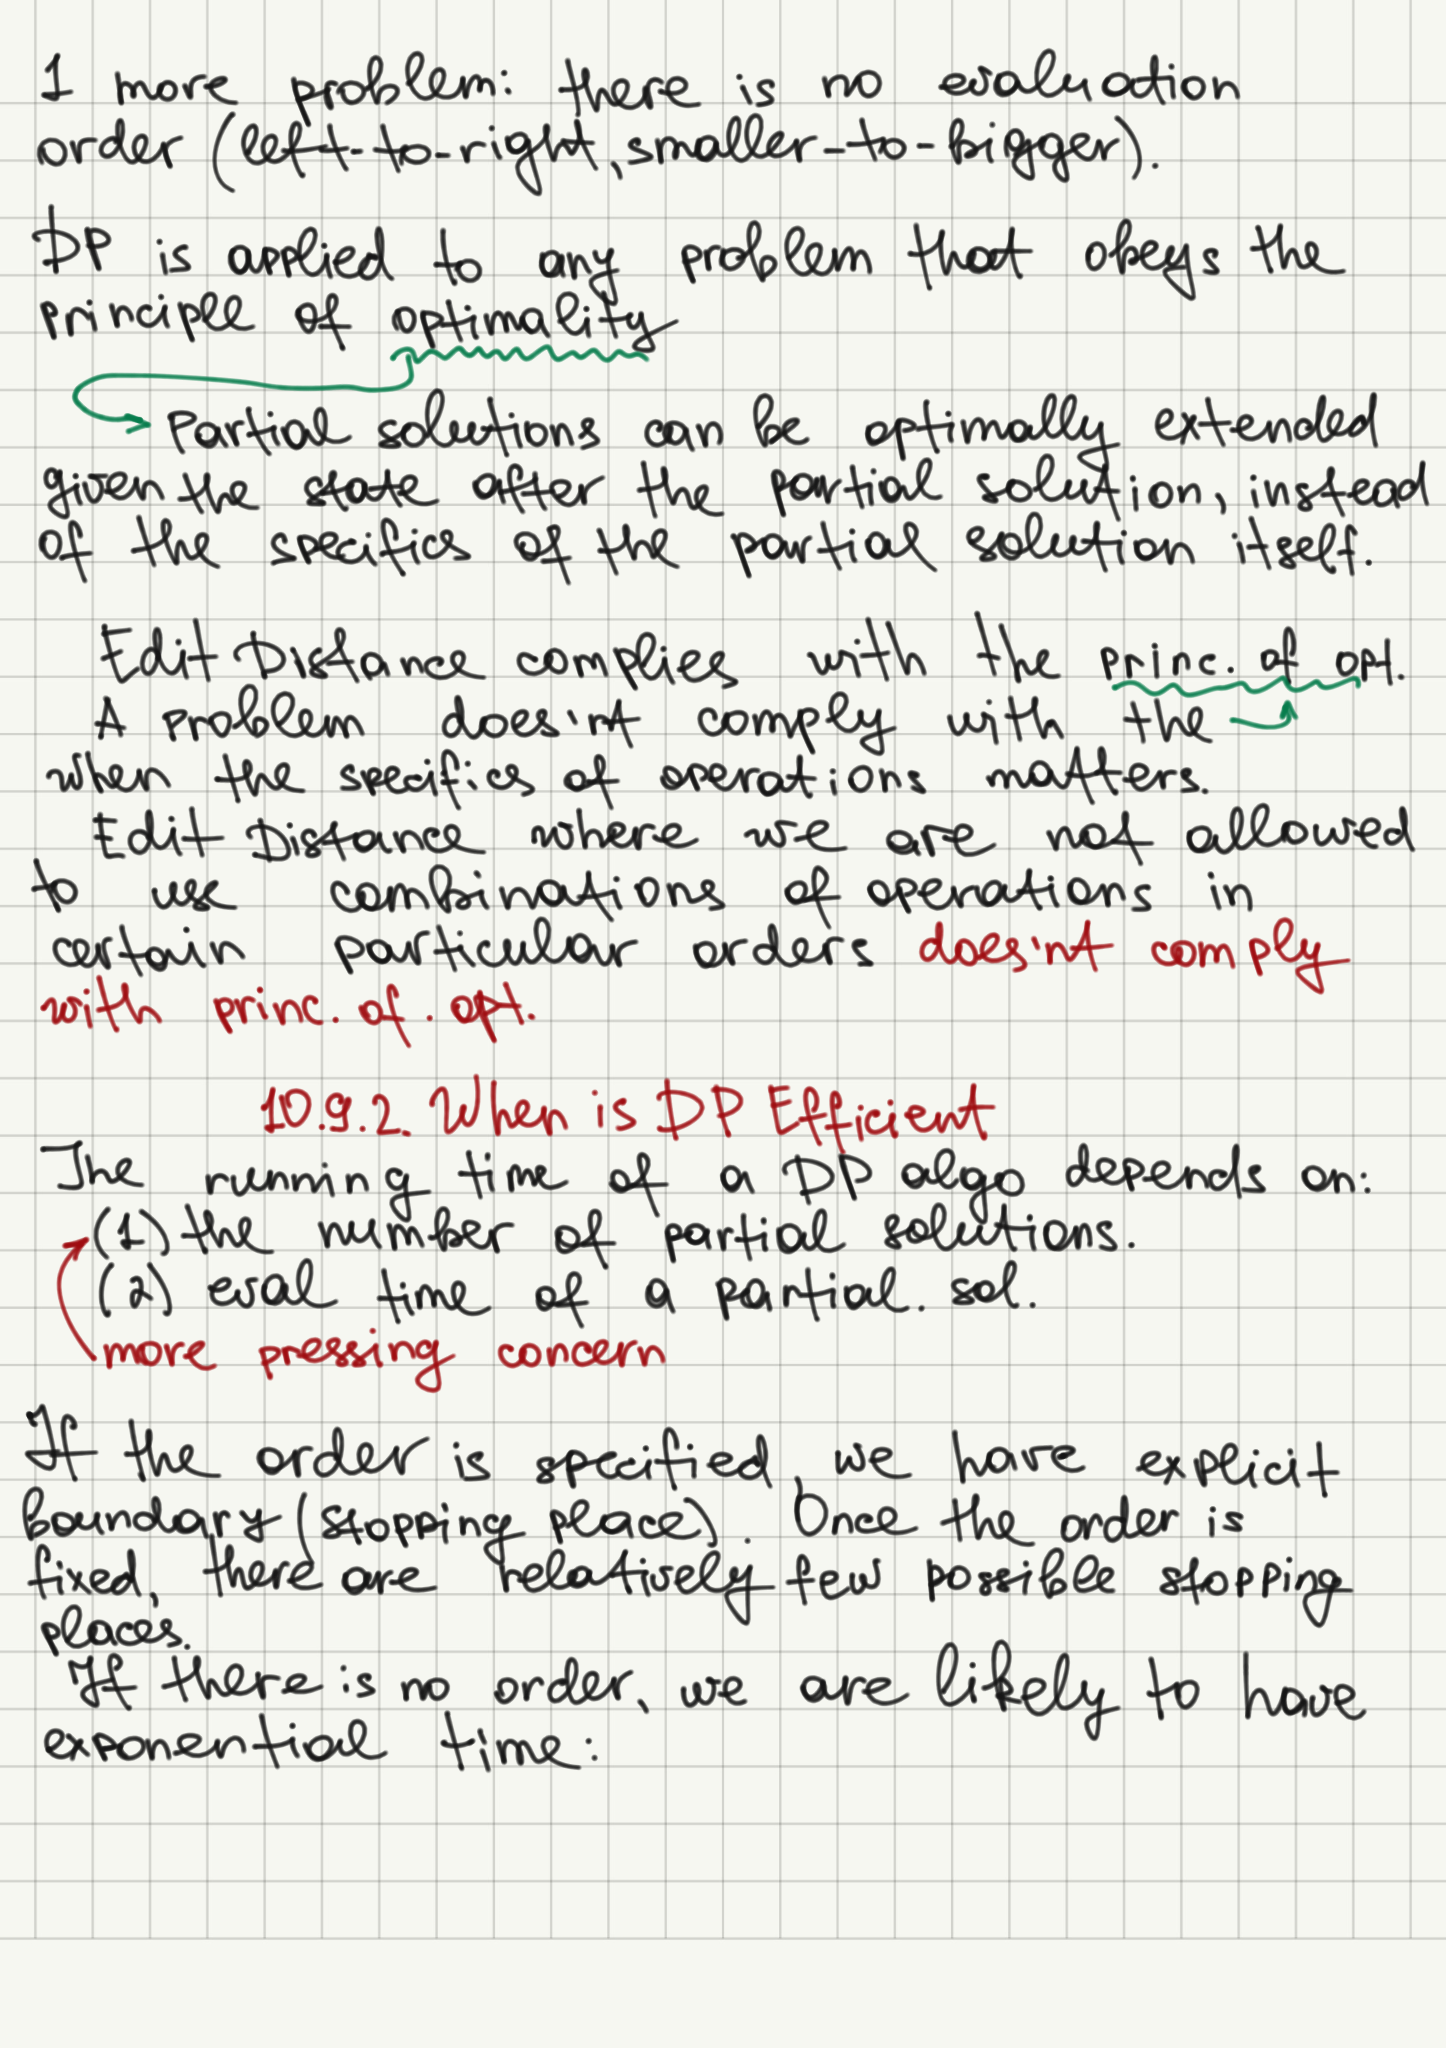 1 more problem: there is no evaluation
order (left-to-right, smaller-to-bigger).
DP is applied to any problem that obeys the
principle of optimality
Partial solutions can be optimally extended
given the state after the partial solution, instead
of the specifics of the partial solution itself.
Edit Distance complies with the princ. of opt.
A problem does'nt comply with the
when the specifics of operations matters.
Edit Distance where we are not allowed
to use combinations of operations in
certain particular orders does'nt comply
with princ. of. opt.
10.9.2. When is DP Efficient
The running time of a DP algo depends on:
(1) the number of partial solutions.
(2) eval time of a partial. sol.
more pressing concern
If the order is specified, we have explicit
boundary (stopping place). Once the order is
fixed, there are relatively few possible stopping
places.
If there is no order, we are likely to have
exponential time: